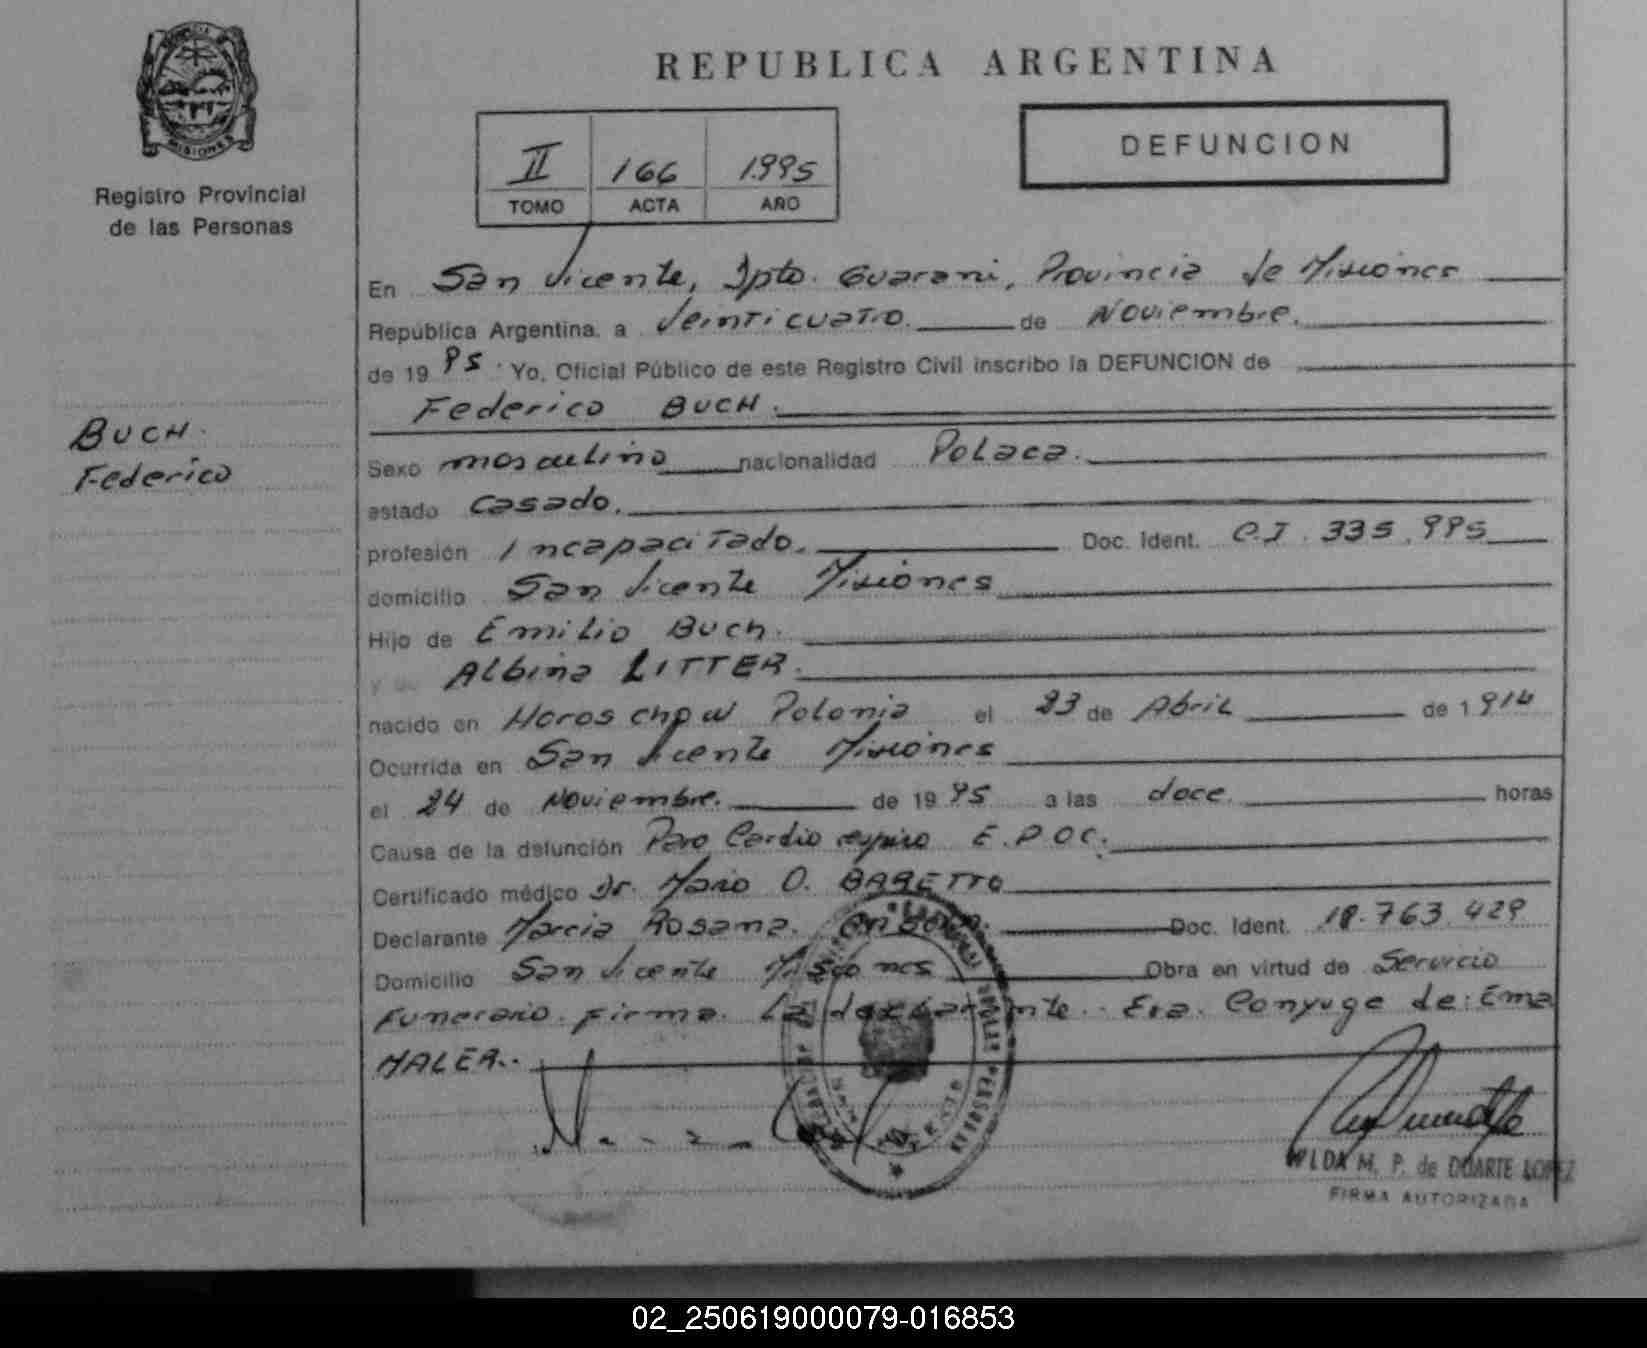 PROVINCIA DE
MISIONES
Registro Provincial
de las Personas
REPUBLICA ARGENTINA
II 166 1995
TOMO ACTA AÑO
DEFUNCION
En San Vicente, Dpto. Guarani, Provincia de Misiones
República Argentina, a Veinticuatro. de Noviembre.
de 19 95. Yo, Oficial Público de este Registro Civil inscribo la DEFUNCION de
Federico BUCH.
BUCH.
Federico
Sexo masculino nacionalidad Polaca.
estado Casado.
profesión Incapacitado. Doc. Ident. C.I. 335.995
domicilio San Vicente Misiones
Hijo de Emilio Buch.
y de Albina LITTER.
nacido en Horoschpw Polonia el 23 de Abril de 1914
Ocurrida en San Vicente Misiones
el 24 de Noviembre. de 19 95 a las doce. horas
Causa de la defunción Paro Cardio respiro E.P.O.C.
Certificado médico Dr. Mario O. BARETTO
Declarante Marcia Rosana. Doc. Ident. 18.763.429
Domicilio San Vicente Misiones Obra en virtud de Servicio
Funerario. Firma. La declarante. Era Conyuge de: Ema
MALER..
HILDA M. P. de DUARTE LOPEZ
FIRMA AUTORIZADA
02_250619000079-016853